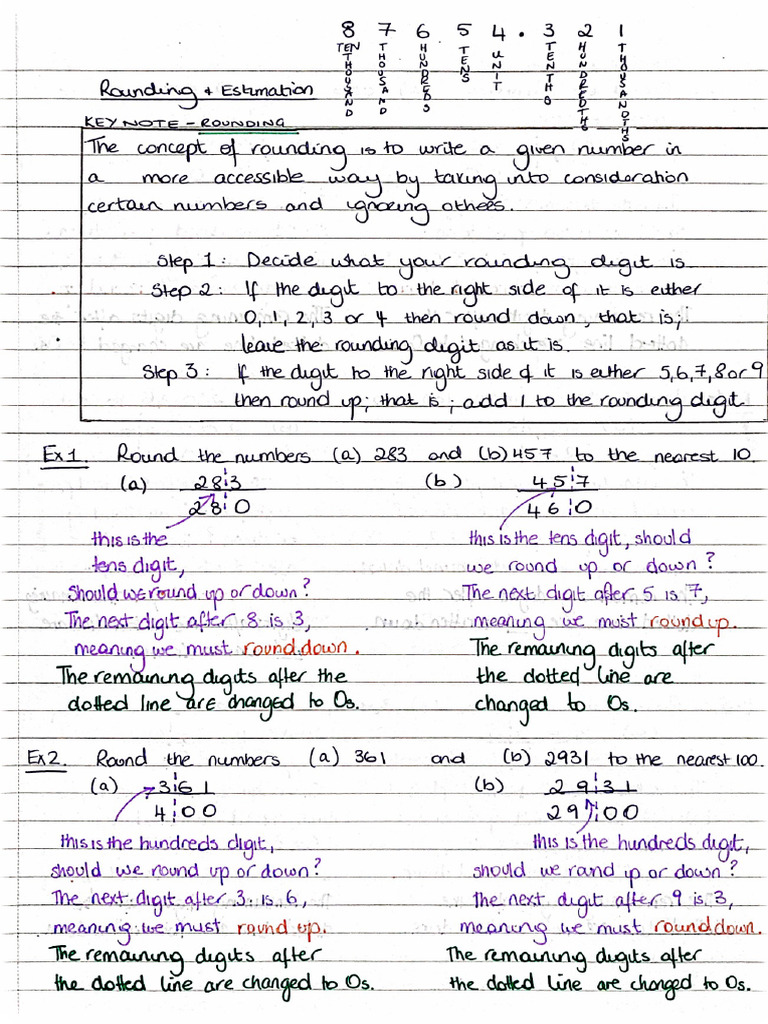 8 7 6 5 4 . 3 2 1
TEN THOUSAND
THOUSAND
HUNDREDS
TENS
UNIT
TENTHS
HUNDREDTHS
THOUSANDTHS
Rounding + Estimation
KEY NOTE - ROUNDING
The concept of rounding is to write a given number in
a more accessible way by taking into consideration
certain numbers and ignoring others.
Step 1: Decide what your rounding digit is
Step 2: If the digit to the right side of it is either
0, 1, 2, 3 or 4 then round down, that is;
leave the rounding digit as it is.
Step 3: If the digit to the right side of it is either 5,6,7,8 or 9
then round up; that is; add 1 to the rounding digit
Ex1. Round the numbers (a) 283 and (b) 457 to the nearest 10.
(a) 28¦3 (b) 45¦7
28¦0 46¦0
this is the
tens digit,
should we round up or down?
The next digit after 8 is 3,
meaning we must round down.
The remaining digits after the
dotted line are changed to 0s.
this is the tens digit, should
we round up or down?
The next digit after 5 is 7,
meaning we must round up.
The remaining digits after
the dotted line are
changed to 0s.
Ex2. Round the numbers (a) 361 and (b) 2931 to the nearest 100.
(a) 3¦61 (b) 29¦31
4¦00 29¦00
this is the hundreds digit,
should we round up or down?
The next digit after 3 is 6,
meaning we must round up.
The remaining digits after
the dotted line are changed to 0s.
this is the hundreds digit,
should we round up or down?
The next digit after 9 is 3,
meaning we must round down.
The remaining digits after
the dotted line are changed to 0s.